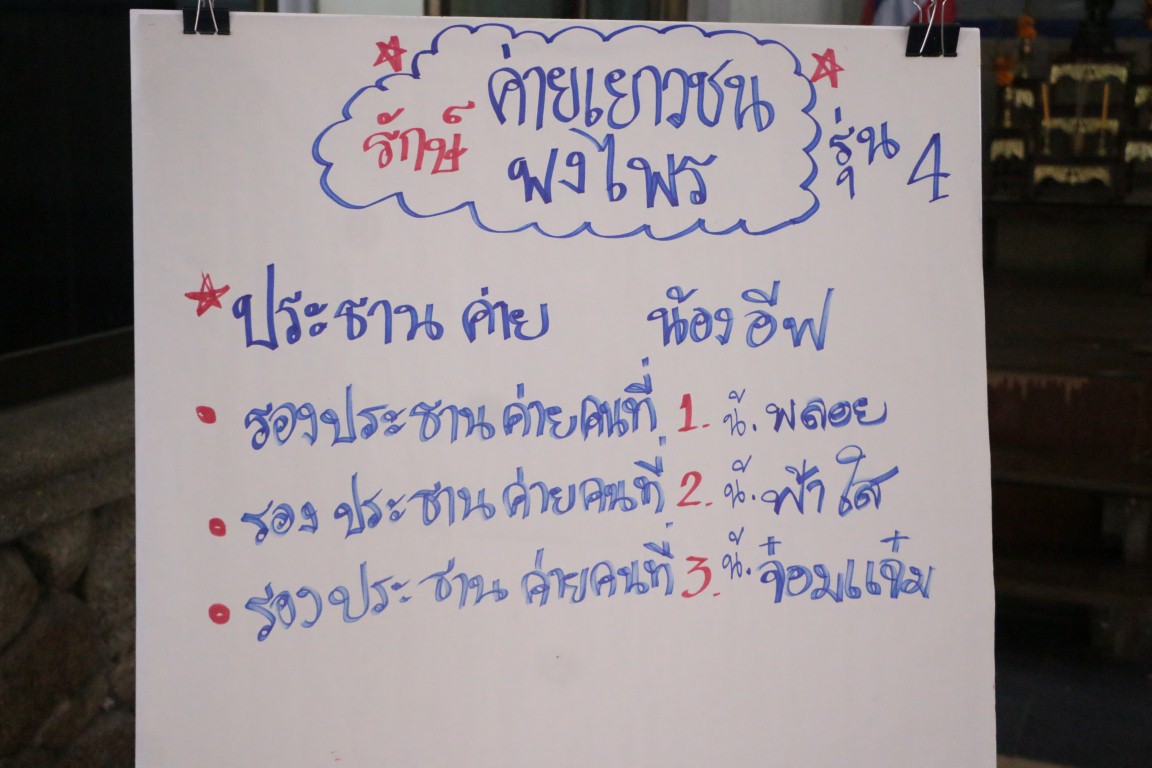 ค่ายเยาวชน
รักษ์ พงไพร รุ่น 4
ประธาน ค่าย น้องอีฟ
รองประธานค่ายคนที่ 1. น้. พลอย
รอง ประธานค่ายคนที่ 2. น้. ฟ้าใส
รองประธาน ค่ายคนที่ 3. น้. จ๋อมแจ๋ม